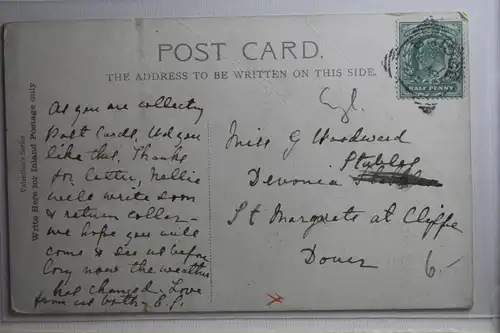 POST CARD.
THE ADDRESS TO BE WRITTEN ON THIS SIDE.
HALF PENNY
Valentine's Series
Write Here for Inland Postage only
As you are collecting
Post Cards, Wd you
like this. Thanks
for letter, Nellie
will write soon
& return collar
we hope you will
come & see us before
long now the weather
has changed. Love
from us both
Miss G Woodward
Stables
Devonia
St Margrets at Cliffe
Dover
6.-
x